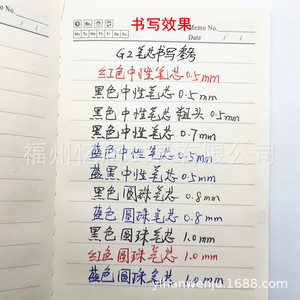 书写效果
Memo No.
Mo Tu We Th Fr Sa Su
Date
G2笔芯书写参考
红色中性笔芯0.5mm
黑色中性笔芯0.5mm
黑色中性笔芯粗头0.5mm
黑色中性笔芯0.7mm
蓝色中性笔芯0.5mm
蓝黑中性笔芯0.5mm
黑色圆珠笔芯0.8mm
蓝色圆珠笔芯0.8mm
黑色圆珠笔芯1.0mm
红色圆珠笔芯1.0mm
蓝色圆珠笔芯1.0mm
yihanwenju1688.com